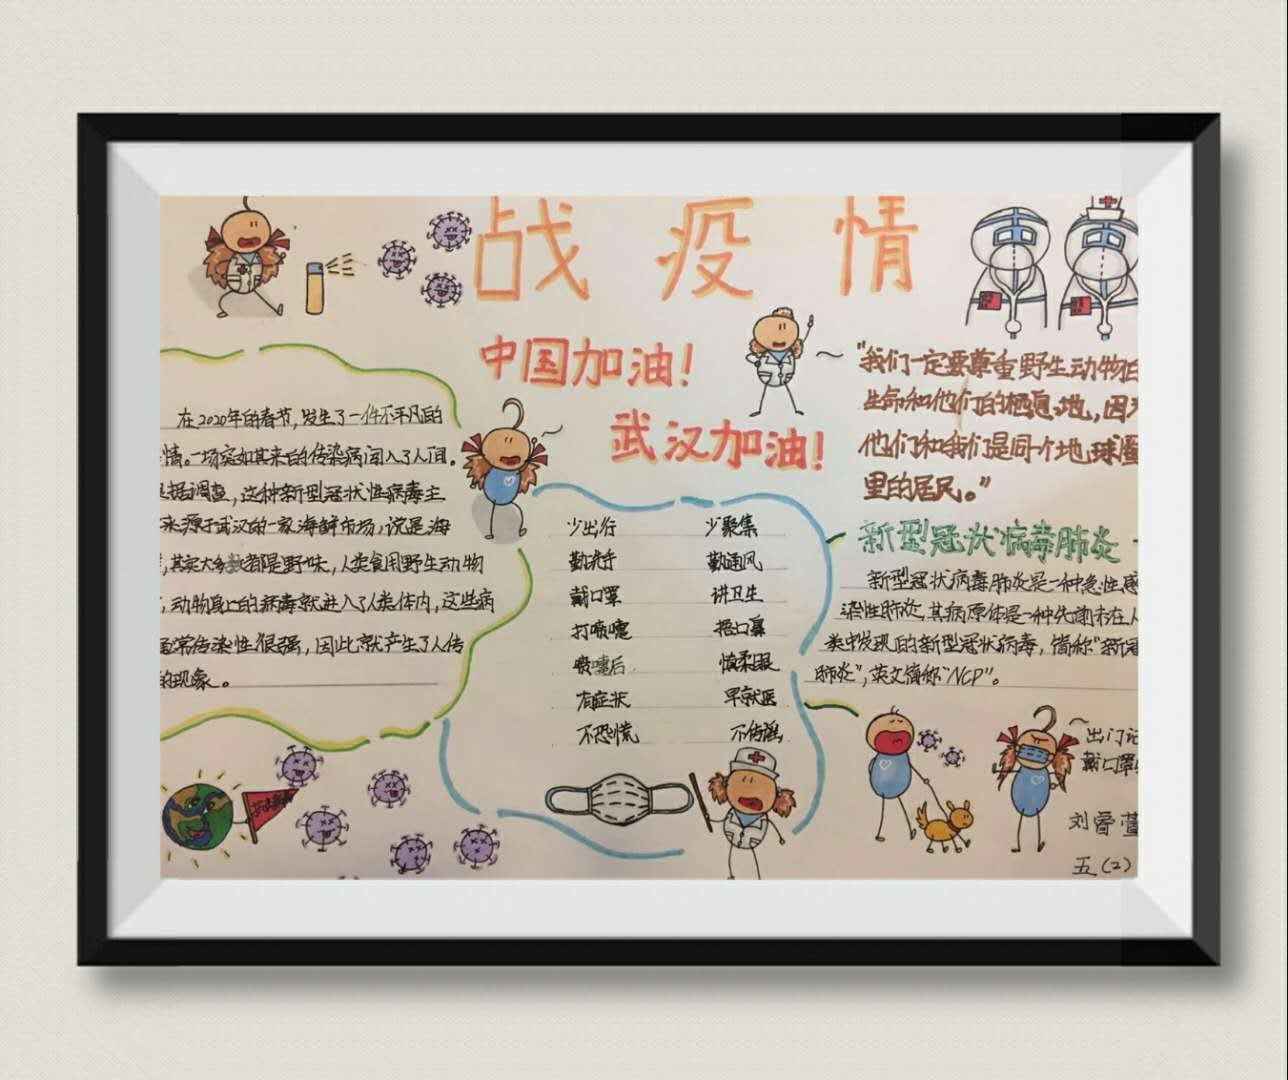 战疫情
中国加油！
武汉加油！
在2020年的春节，发生了一件不平凡的
情。一场突如其来的传染病闯入了人间。
据调查，这种新型冠状性病毒主
来源于武汉的一家海鲜市场，说是海
，其实大多数都是野味，人类食用野生动物
，动物身上的病毒就进入了人类体内，这些病
传染性很强，因此就产生了人传
的现象。
少出行 少聚集
勤洗手 勤通风
戴口罩 讲卫生
打喷嚏 捂口鼻
喷嚏后 慎柔眼
有症状 早就医
不恐慌 不传谣
"我们一定要尊重野生动物
生命和他们的栖息地，因
他们和我们是同个地球
里的居民。"
新型冠状病毒肺炎
新型冠状病毒肺炎是一种急性感
染性肺炎，其病原体是一种先前未在人
类中发现的新型冠状病毒，简称"新冠
肺炎"，英文简称"NCP"。
出门记
戴口罩
刘
五(2)